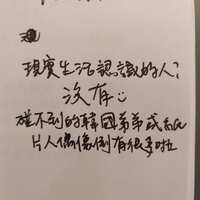 現實生活認識的人?
沒有:)
碰不到的韓國弟弟或紙
片人偶像倒有很多啦